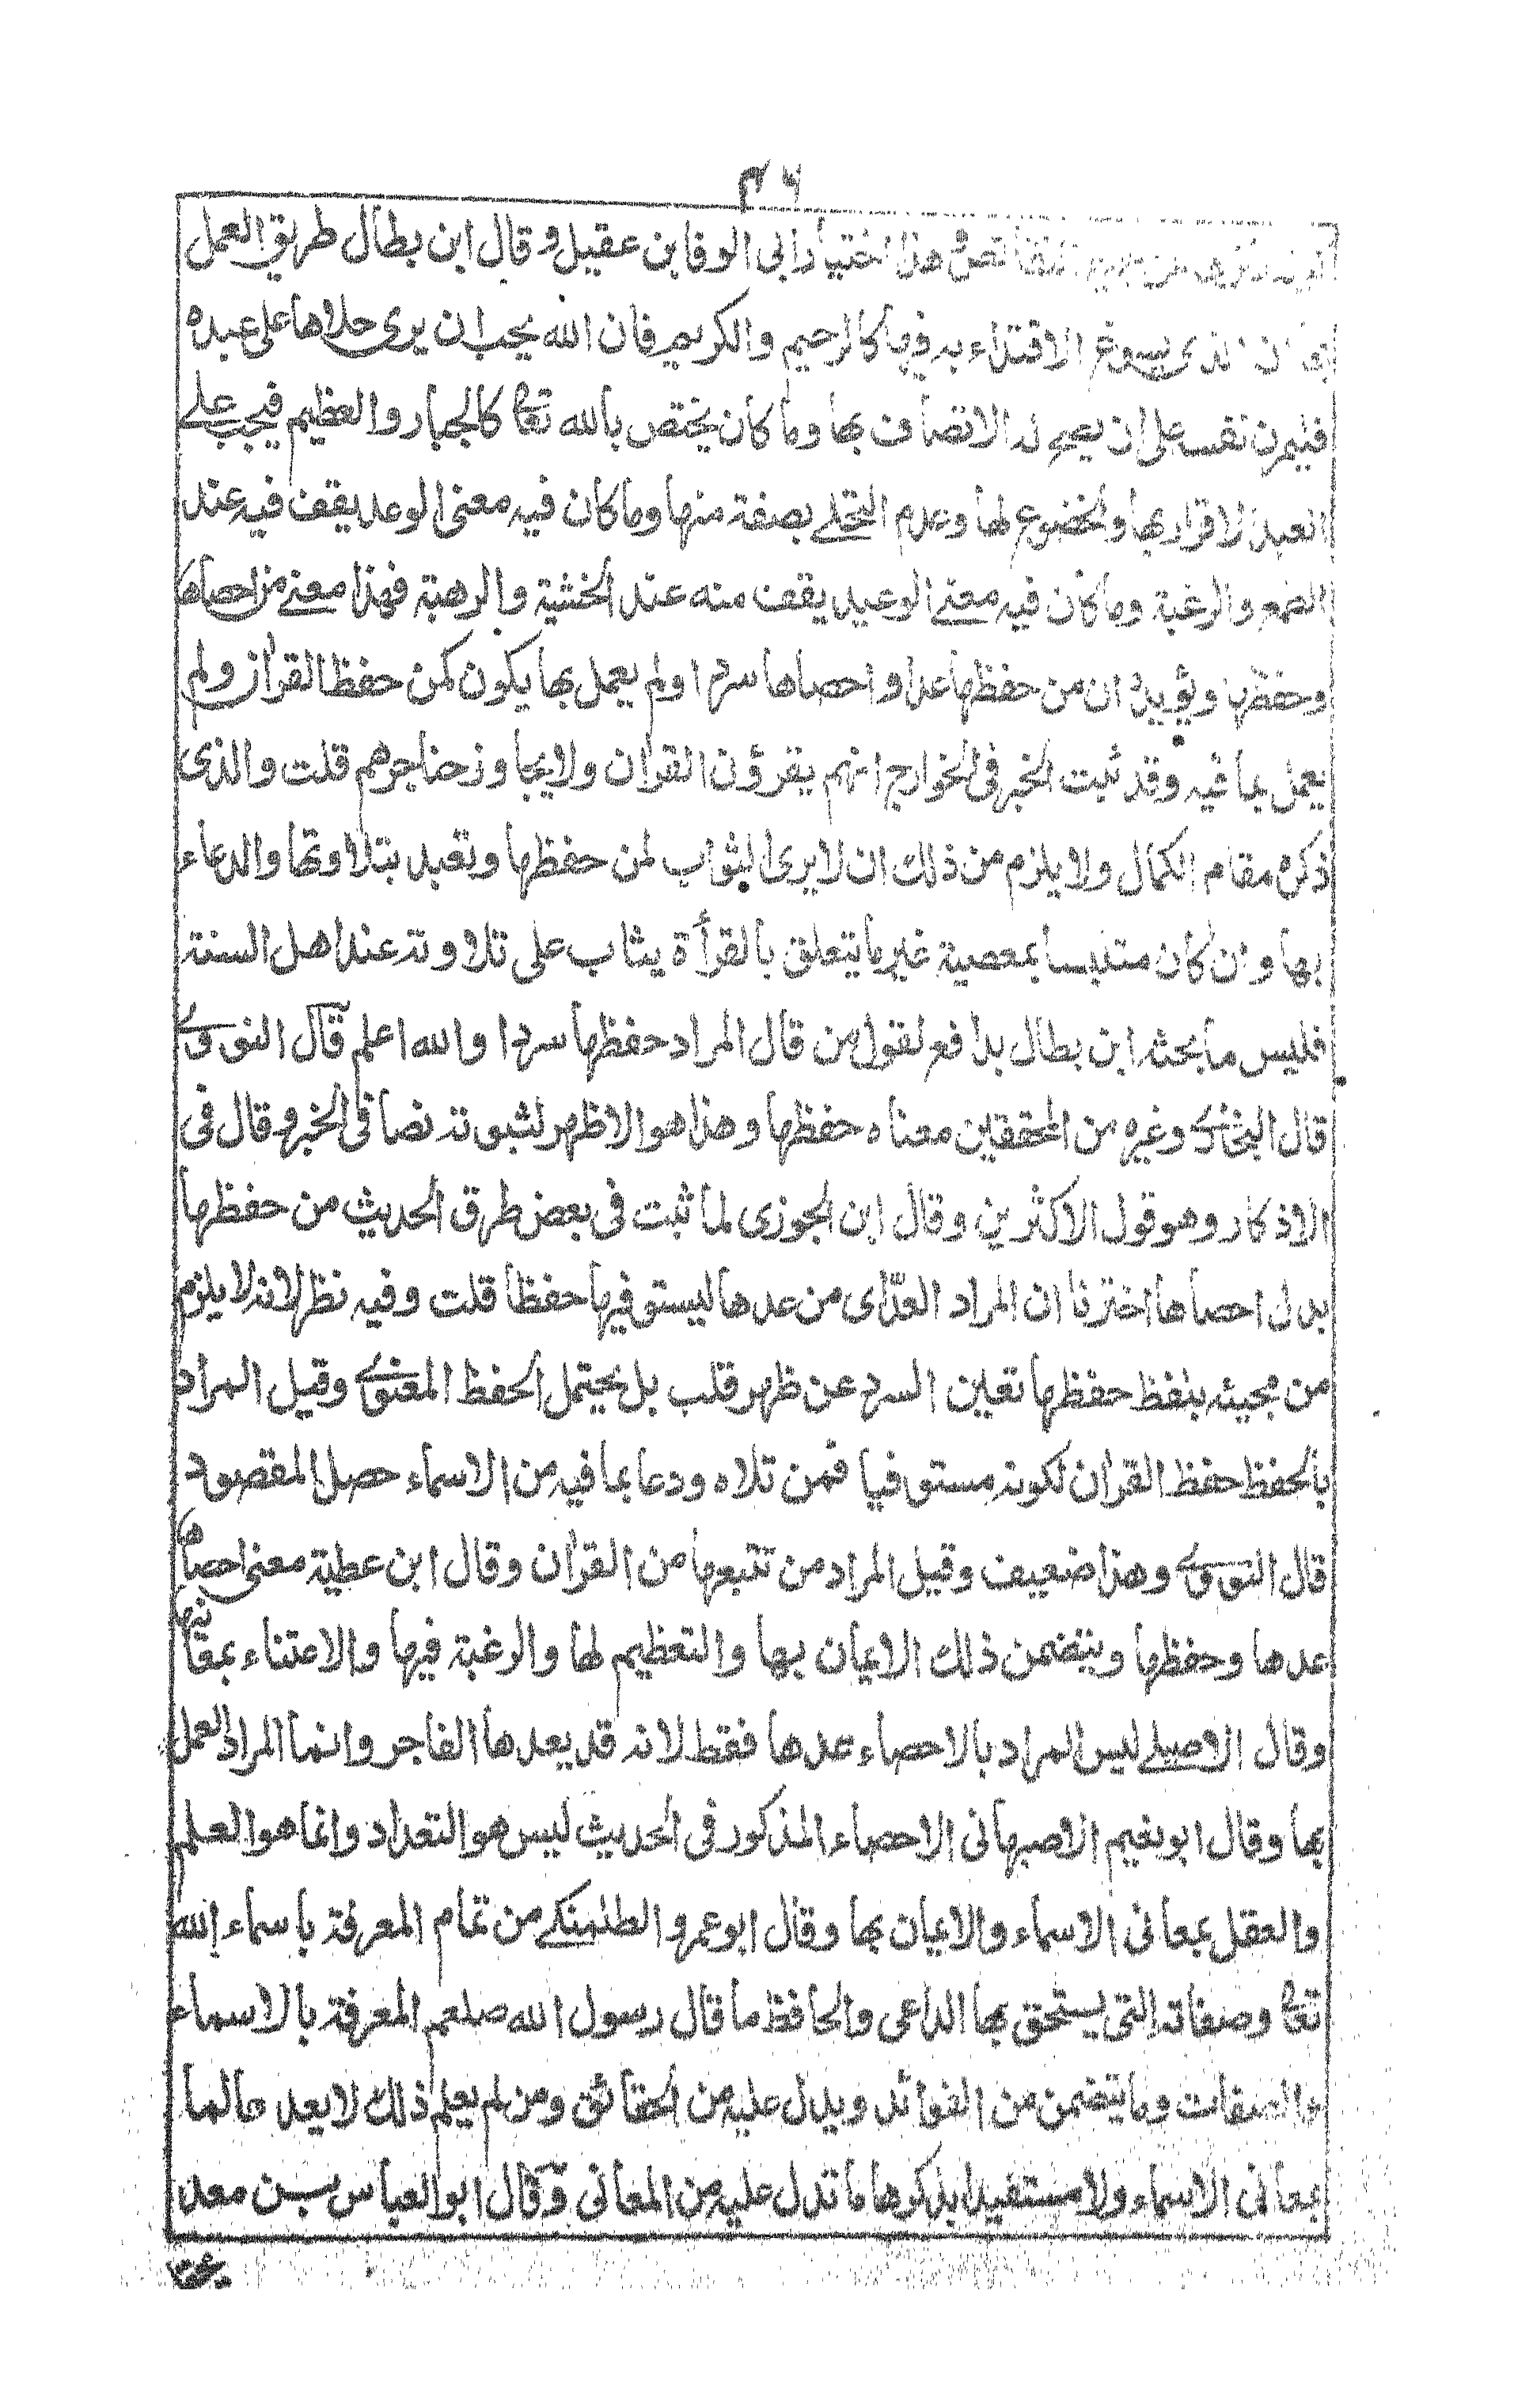 ٤٦
النقائص وهذا اختيار ابى الوفا بن عقيل وقال ابن بطال طريق العمل
الذى يسوغ الاقتداء به فيها كالرحيم والكريم فان الله يحب ان يرى حلاها على عبده
فليمرن نفسه على ان يصح له الاتصاف بها وما كان يختص بالله تعا كالجبار والعظيم فيجب على
العبد الاقرار بها والخضوع لها وعدم التحلے بصفة منها وما كان فيه معنى الوعد يقف فيه عند
الطمع والرغبة وما كان فيه معنے الوعيد يقف منه عند الخشية والرهبة فهذا معنے من احصاها
وحفظها ويؤيده ان من حفظها عدا واحصاها سردا ولم يعمل بها يكون كمن حفظ القران ولم
يعمل بما فيه وقد ثبت الخبر فى الخوارج انهم يقرؤن القران ولا يجاوز حناجرهم قلت والذى
ذكره مقام الكمال ولا يلزم من ذلك ان لا يرى الثواب لمن حفظها وتعبد بتلاوتها والدعاء
بها وان كان متلبسا بمعصية غير ما يتعلق بالقرأة يثاب على تلاوته عند اهل السنة
فليس ما بحثه ابن بطال بدافع لقول من قال المراد حفظها سردا والله اعلم قال النووے
قال البخارے وغيره من المحققين معناه حفظها وهذا هو الاظهر لثبوته نصا فى الخبر وقال فى
الاذكار وهو قول الاكثرين وقال ابن الجوزى لما ثبت فى بعض طرق الحديث من حفظها
بدل احصاها اخترنا ان المراد العدّ اى من عدها ليستوفيها حفظا قلت وفيه نظر لانه لا يلزم
من مجيئه بلفظ حفظها تعين السرد عن ظهر قلب بل يحتمل الحفظ المعنوے وقيل المراد
بالحفظ حفظ القران لكونه مستوفيا فمن تلاه ودعا بما فيه من الاسماء حصل المقصود
قال النووے وهذا ضعيف وقيل المراد من تتبعها من القران وقال ابن عطية معنى احصاها
عدها وحفظها ويتضمن ذلك الايمان بها والتعظيم لها والرغبة فيها والاعتناء بمعانيها
وقال الاصيلے ليس المراد بالاحصاء عدها فقط لانه قد يعدها الفاجر وانما المراد العمل
بها وقال ابو نعيم الاصبهانى الاحصاء المذكور فى الحديث ليس هو التعداد وانما هو العلم
والعقل بمعانى الاسماء والايمان بها وقال ابو عمرو الطلمنكے من تمام المعرفة باسماء الله
تعا وصفاته التى يستحق بها الداعى والحافظ ما قال رسول الله صلعم المعرفة بالاسماء
والصفات وما يتضمن من الفوائد ويدل عليه من الحقائق ومن لم يعلم ذلك لا يعد عالما
بمعانى الاسماء ولا مستفيدا بذكرها ما تدل عليه من المعانى وقال ابو العباس بن معد